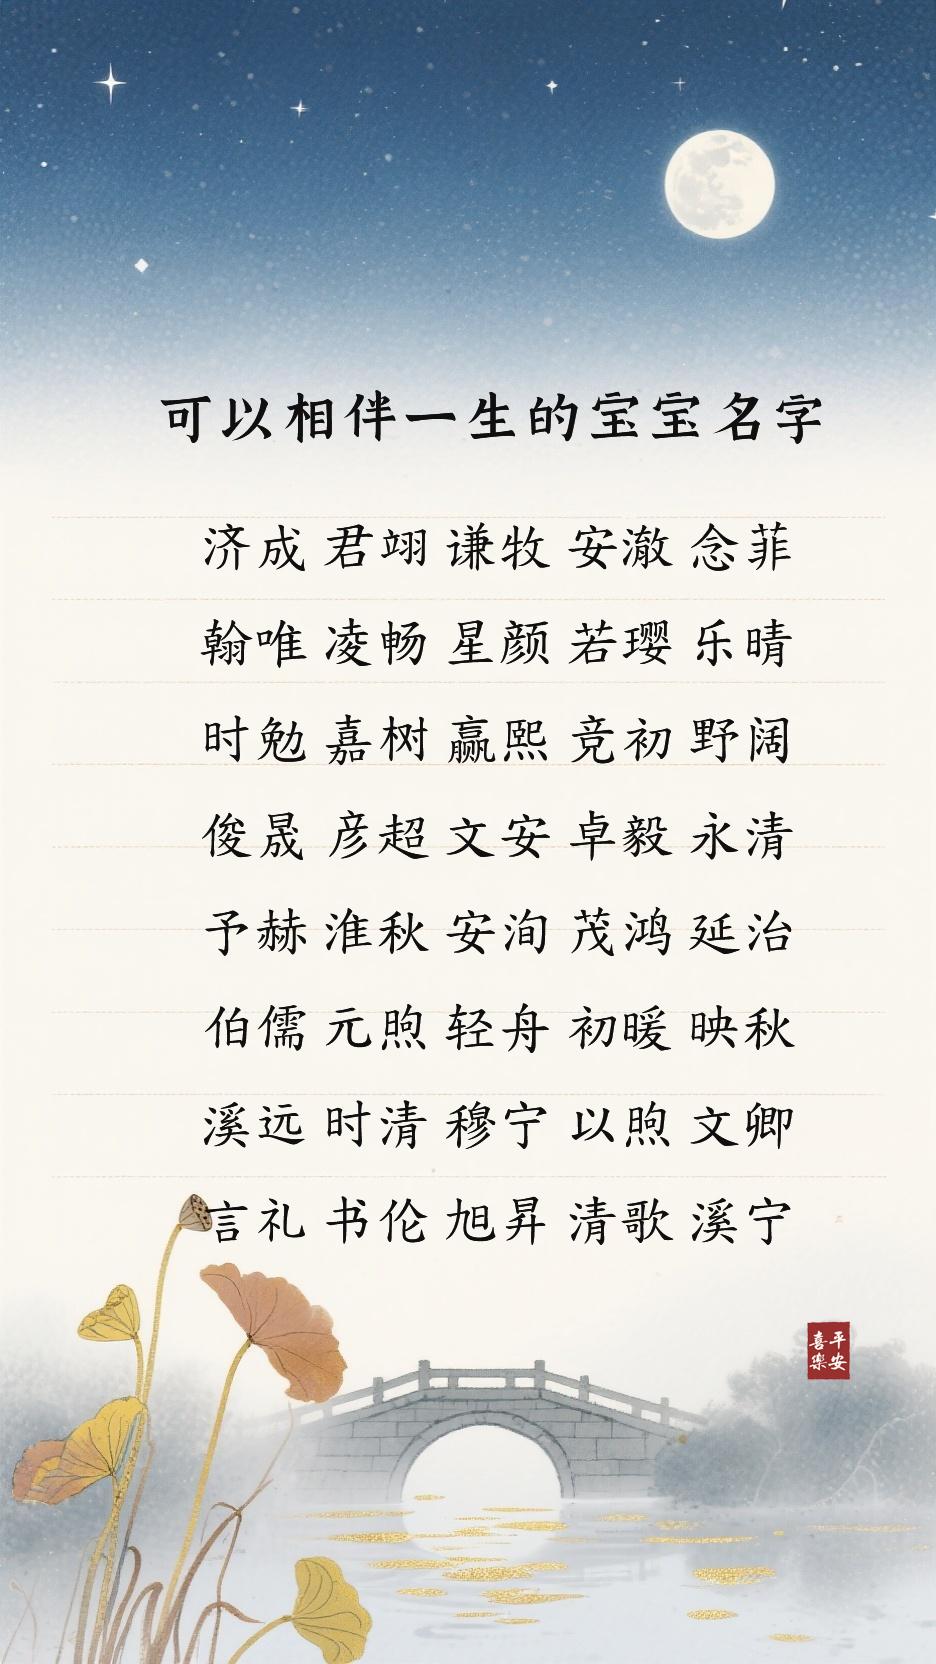 可以相伴一生的宝宝名字
济成 君翊 谦牧 安澈 念菲
翰唯 凌畅 星颜 若璎 乐晴
时勉 嘉树 赢熙 竞初 野阔
俊晟 彦超 文安 卓毅 永清
予赫 淮秋 安洵 茂鸿 延治
伯儒 元煦 轻舟 初暖 映秋
溪远 时清 穆宁 以煦 文卿
言礼 书伦 旭昇 清歌 溪宁
平安
喜樂